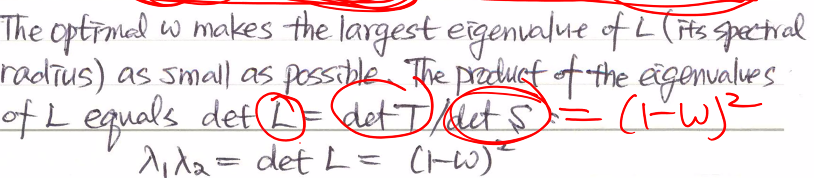 The optimal ω makes the largest eigenvalue of L (its spectral
radius) as small as possible. The product of the eigenvalues
of L equals det L = det T/det S = (1-ω)²
λ₁λ₂ = det L = (1-ω)²